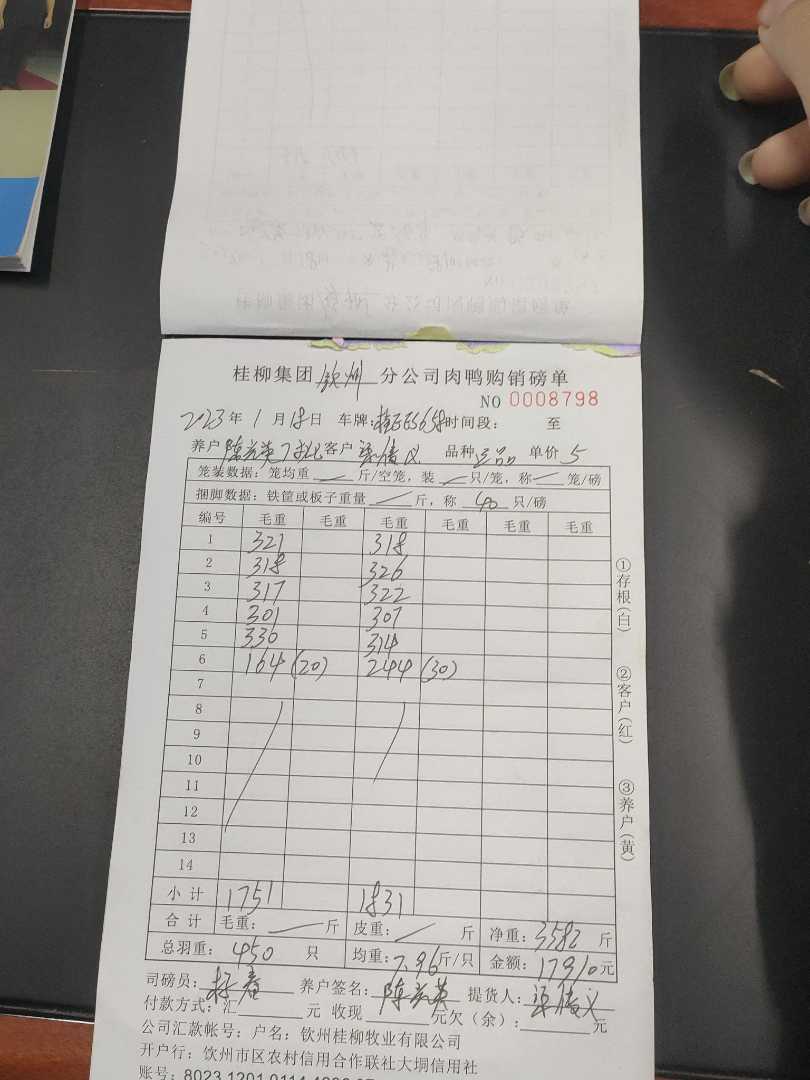 桂柳集团 钦州 分公司肉鸭购销磅单
NO 0008798
2023年1月18日 车牌: 时间段: 至
养户 陈 英 客户 品种 单价 5
笼装数据: 笼均重 斤/空笼, 装 只/笼, 称 笼/磅
捆脚数据: 铁筐或板子重量 斤, 称 40 只/磅
编号 毛重 毛重 毛重 毛重 毛重 毛重
1 321 318
2 318 326
3 317 322
4 301 307
5 330 314
6 164 (20) 244 (30)
7
8
9
10
11
12
13
14
小计 1751 1831
合计 毛重: 斤 皮重: 斤 净重: 3582 斤
总羽重: 450 只 均重: 7.96 斤/只 金额: 17910 元
司磅员: 养户签名: 陈 英 提货人:
付款方式: 汇 元 收现 元欠(余): 元
公司汇款帐号: 户名: 钦州桂柳牧业有限公司
开户行: 钦州市区农村信用合作联社大垌信用社
账号: 8023 1201 0114
①存根(白)
②客户(红)
③养户(黄)